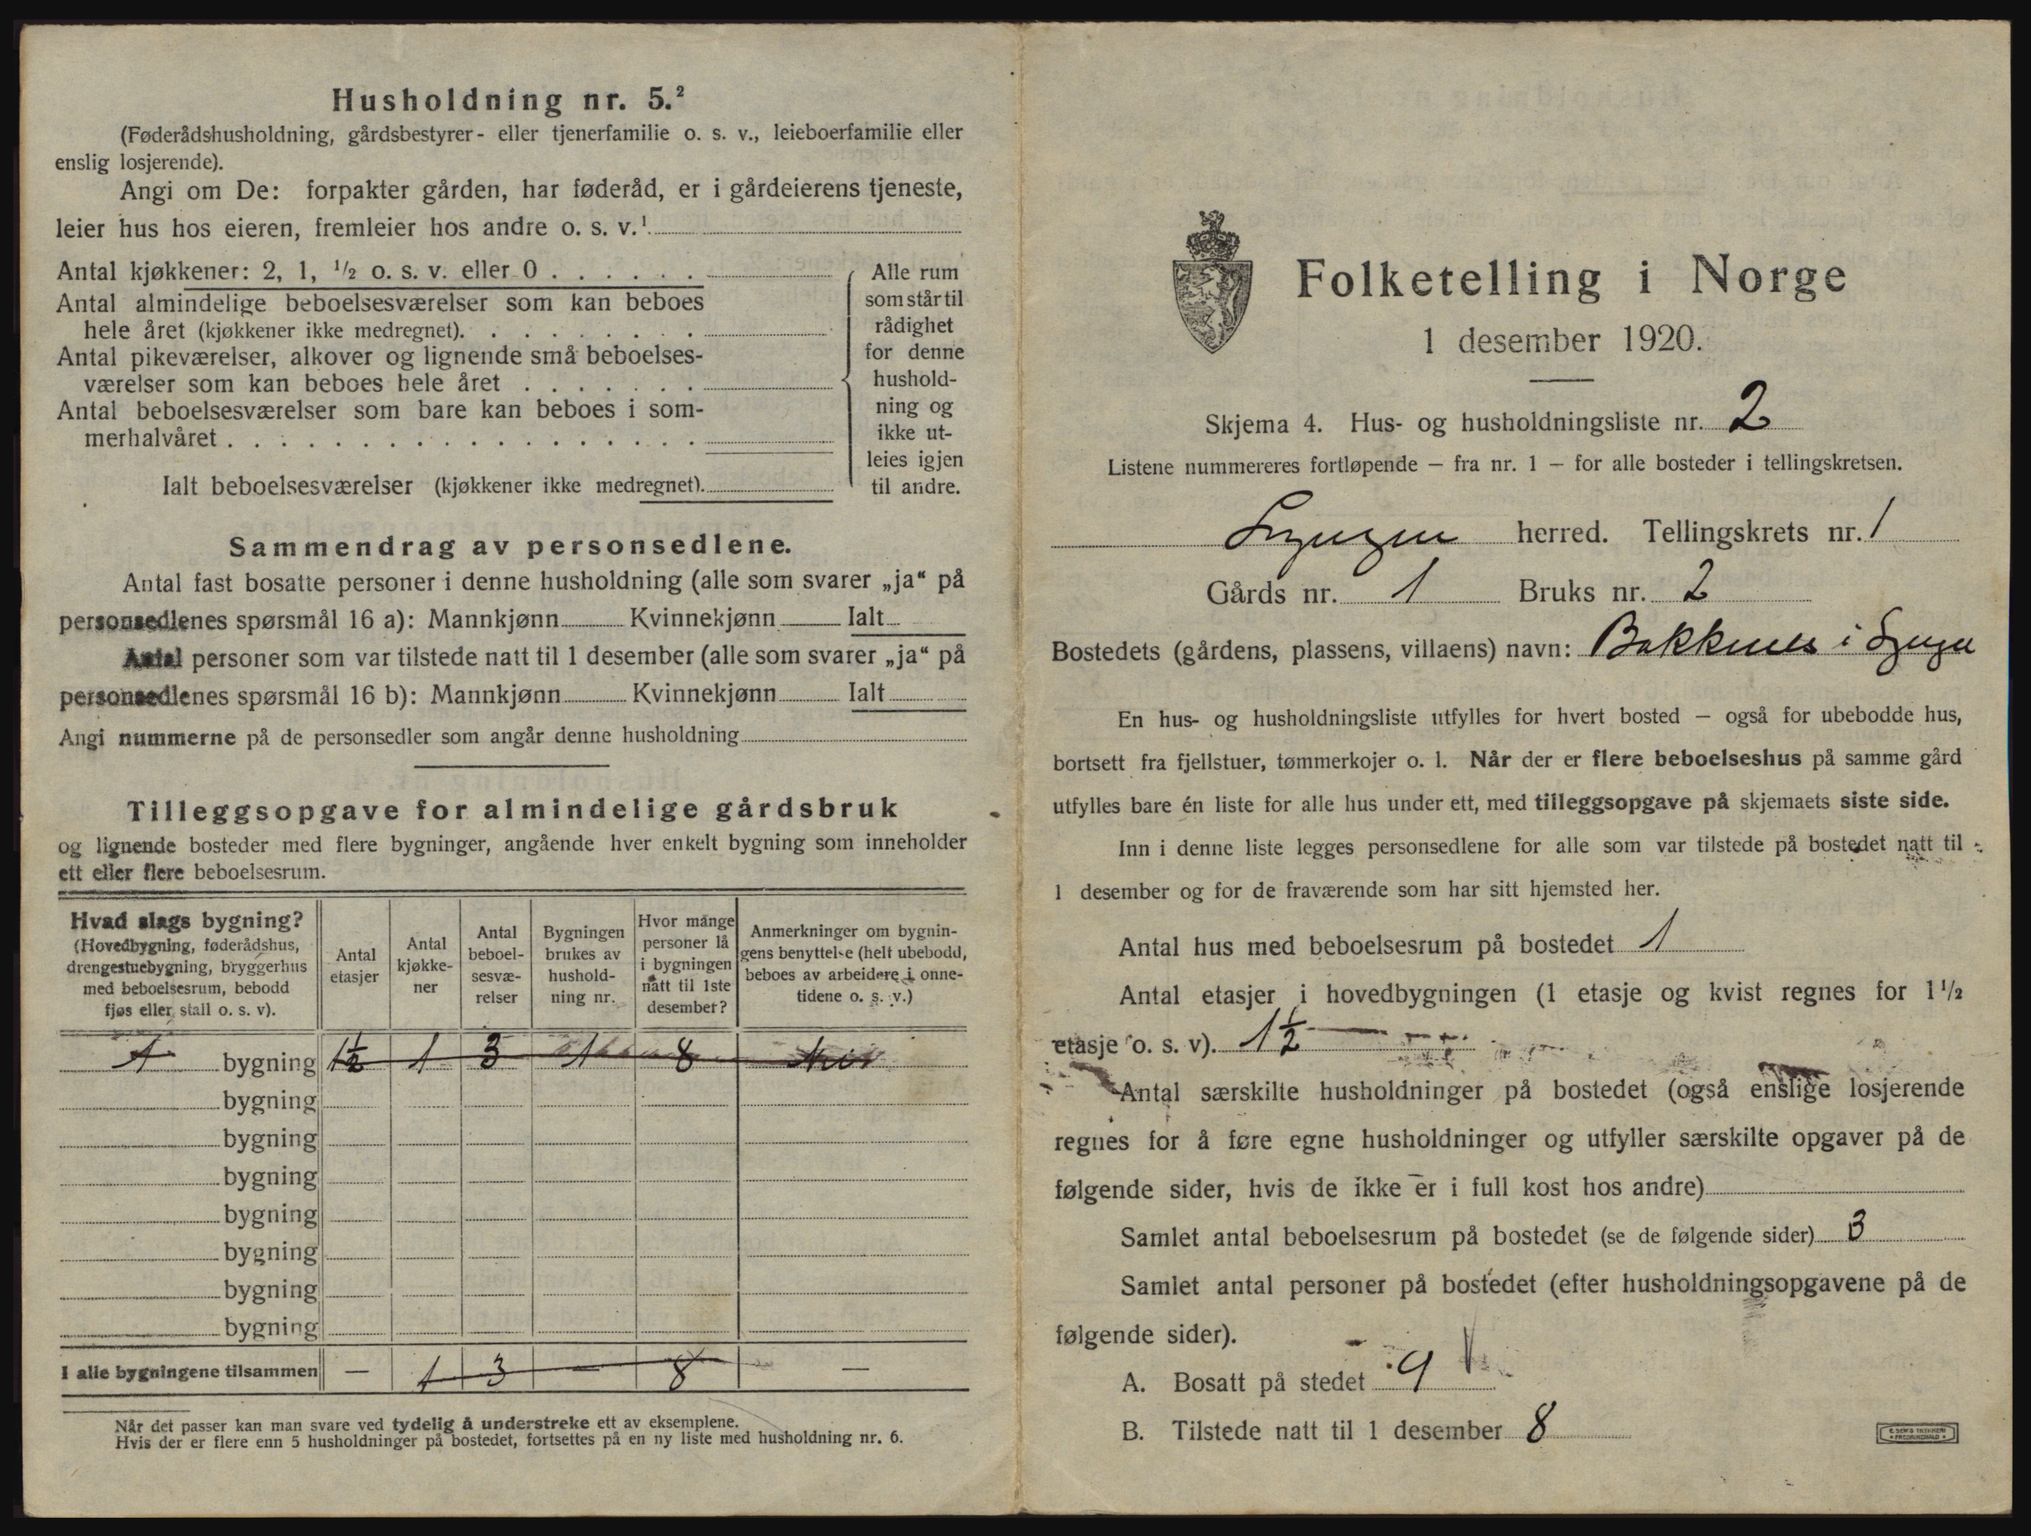 Husholdning nr. 5.²
(Føderådshusholdning, gårdsbestyrer- eller tjenerfamilie o. s. v., leieboerfamilie eller
enslig losjerende).
Angi om De: forpakter gården, har føderåd, er i gårdeierens tjeneste,
leier hus hos eieren, fremleier hos andre o. s. v.¹
Antal kjøkkener: 2, 1, ½ o. s. v. eller 0
Antal almindelige beboelsesværelser som kan beboes
hele året (kjøkkener ikke medregnet).
Antal pikeværelser, alkover og lignende små beboelses-
værelser som kan beboes hele året
Antal beboelsesværelser som bare kan beboes i som-
merhalvåret
Ialt beboelsesværelser (kjøkkener ikke medregnet).
Alle rum
som står til
rådighet
for denne
hushold-
ning og
ikke ut-
leies igjen
til andre.
Sammendrag av personsedlene.
Antal fast bosatte personer i denne husholdning (alle som svarer „ja“ på
personsedlenes spørsmål 16 a): Mannkjønn Kvinnekjønn Ialt
Antal personer som var tilstede natt til 1 desember (alle som svarer „ja“ på
personsedlenes spørsmål 16 b): Mannkjønn Kvinnekjønn Ialt
Angi nummerne på de personsedler som angår denne husholdning
Tilleggsopgave for almindelige gårdsbruk
og lignende bosteder med flere bygninger, angående hver enkelt bygning som inneholder
ett eller flere beboelsesrum.
Hvad slags bygning?
(Hovedbygning, føderådshus,
drengestuebygning, bryggerhus
med beboelsesrum, bebodd
fjøs eller stall o. s. v).
Antal
etasjer
Antal
kjøkke-
ner
Antal
beboel-
sesvæ-
relser
Bygningen
brukes av
hushold-
ning nr.
Hvor mange
personer lå
i bygningen
natt til 1ste
desember?
Anmerkninger om bygnin-
gens benyttelse (helt ubebodd,
beboes av arbeidere i onne-
tidene o. s. v.)
1 bygning 1½ 1 3 1 8
bygning
bygning
bygning
bygning
bygning
bygning
bygning
I alle bygningene tilsammen — 1 3 — 8 —
Når det passer kan man svare ved tydelig å understreke ett av eksemplene.
Hvis der er flere enn 5 husholdninger på bostedet, fortsettes på en ny liste med husholdning nr. 6.
Folketelling i Norge
1 desember 1920.
Skjema 4. Hus- og husholdningsliste nr. 2
Listene nummereres fortløpende — fra nr. 1 — for alle bosteder i tellingskretsen.
Lyngen herred. Tellingskrets nr. 1
Gårds nr. 1 Bruks nr. 2
Bostedets (gårdens, plassens, villaens) navn: Bakknes i Lyngen
En hus- og husholdningsliste utfylles for hvert bosted — også for ubebodde hus,
bortsett fra fjellstuer, tømmerkojer o. l. Når der er flere beboelseshus på samme gård
utfylles bare én liste for alle hus under ett, med tilleggsopgave på skjemaets siste side.
Inn i denne liste legges personsedlene for alle som var tilstede på bostedet natt til
1 desember og for de fraværende som har sitt hjemsted her.
Antal hus med beboelsesrum på bostedet 1
Antal etasjer i hovedbygningen (1 etasje og kvist regnes for 1½
etasje o. s. v). 1½
Antal særskilte husholdninger på bostedet (også enslige losjerende
regnes for å føre egne husholdninger og utfyller særskilte opgaver på de
følgende sider, hvis de ikke er i full kost hos andre)
Samlet antal beboelsesrum på bostedet (se de følgende sider) 3
Samlet antal personer på bostedet (efter husholdningsopgavene på de
følgende sider).
A. Bosatt på stedet 9
B. Tilstede natt til 1 desember 8